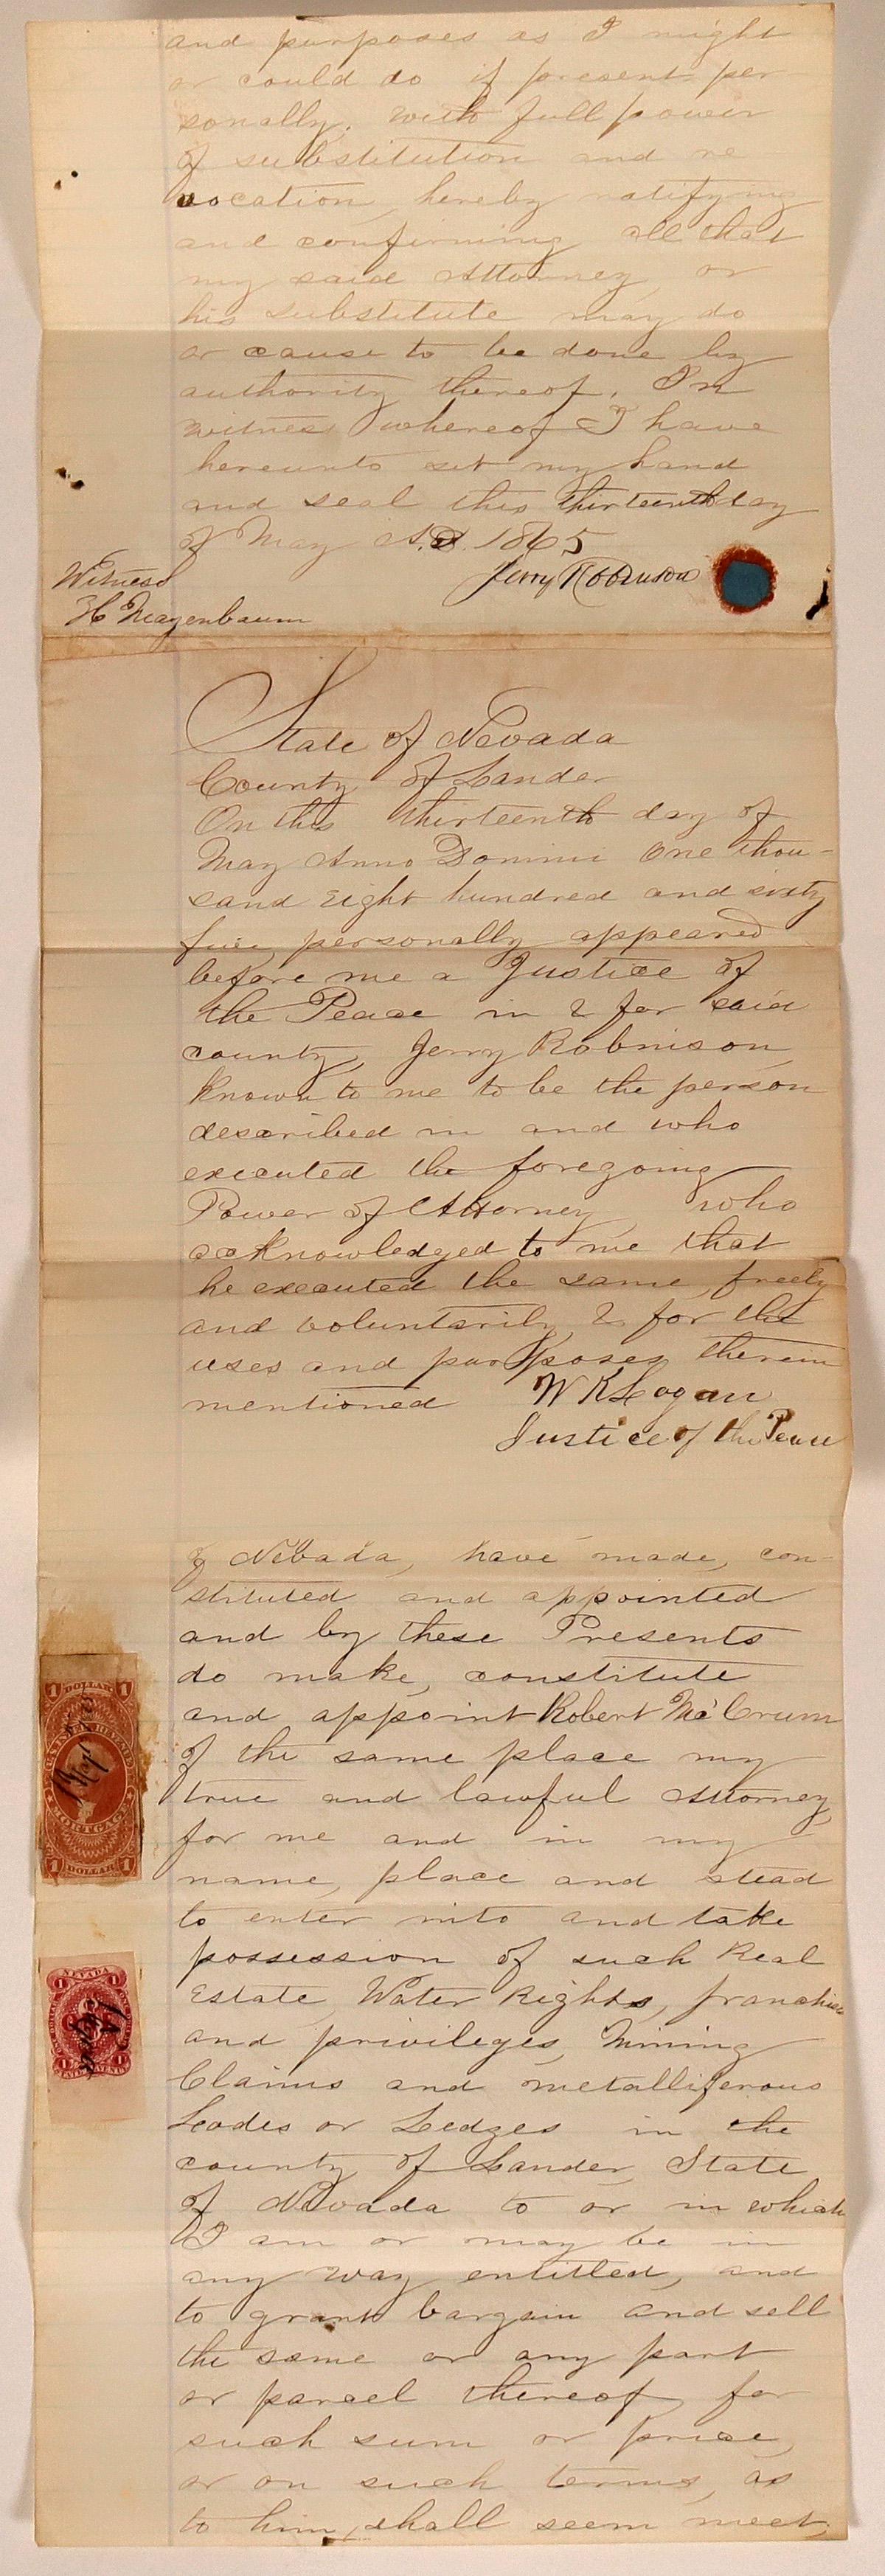 and purposes as I might
or could do if present per
sonally. with full power
of substitution and re
vocation, hereby ratifying
and confirming all that
my said Attorney, or
his substitute may do
or cause to be done by
authority thereof. In
witness whereof I have
hereunto set my hand
and seal this thirteenth day
of May A.D. 1865
Jerry Robinson
Witness
H Mayenbaum
State of Nevada
County of Lander
On this thirteenth day of
May Anno Domini One thou-
sand Eight hundred and sixty
five, personally appeared
before me a Justice of
the Peace in & for said
county, Jerry Robinson
known to me to be the person
described in and who
executed the foregoing
Power of Attorney, who
acknowledged to me that
he executed the same freely
and voluntarily & for the
uses and purposes therein
mentioned W K Logan
Justice of the Peace
of Nevada, have made, con-
stituted and appointed
and by these Presents
do make, constitute
and appoint Robert McCrum
of the same place my
true and lawful Attorney,
for me and in my
name, place and stead
to enter into and take
possession of such Real
Estate, Water Rights, franchises
and privileges, Mining
Claims and metalliferous
Lodes or Ledges in the
county of Lander, State
of Nevada to or in which
I am or may be in
any way entitled, and
to grant bargain and sell
the same or any part
or parcel thereof, for
such sum or price,
or on such terms, as
to him, shall seem meet,
1 DOLLAR 1
MORTGAGE
1 DOLLAR 1
NEVADA